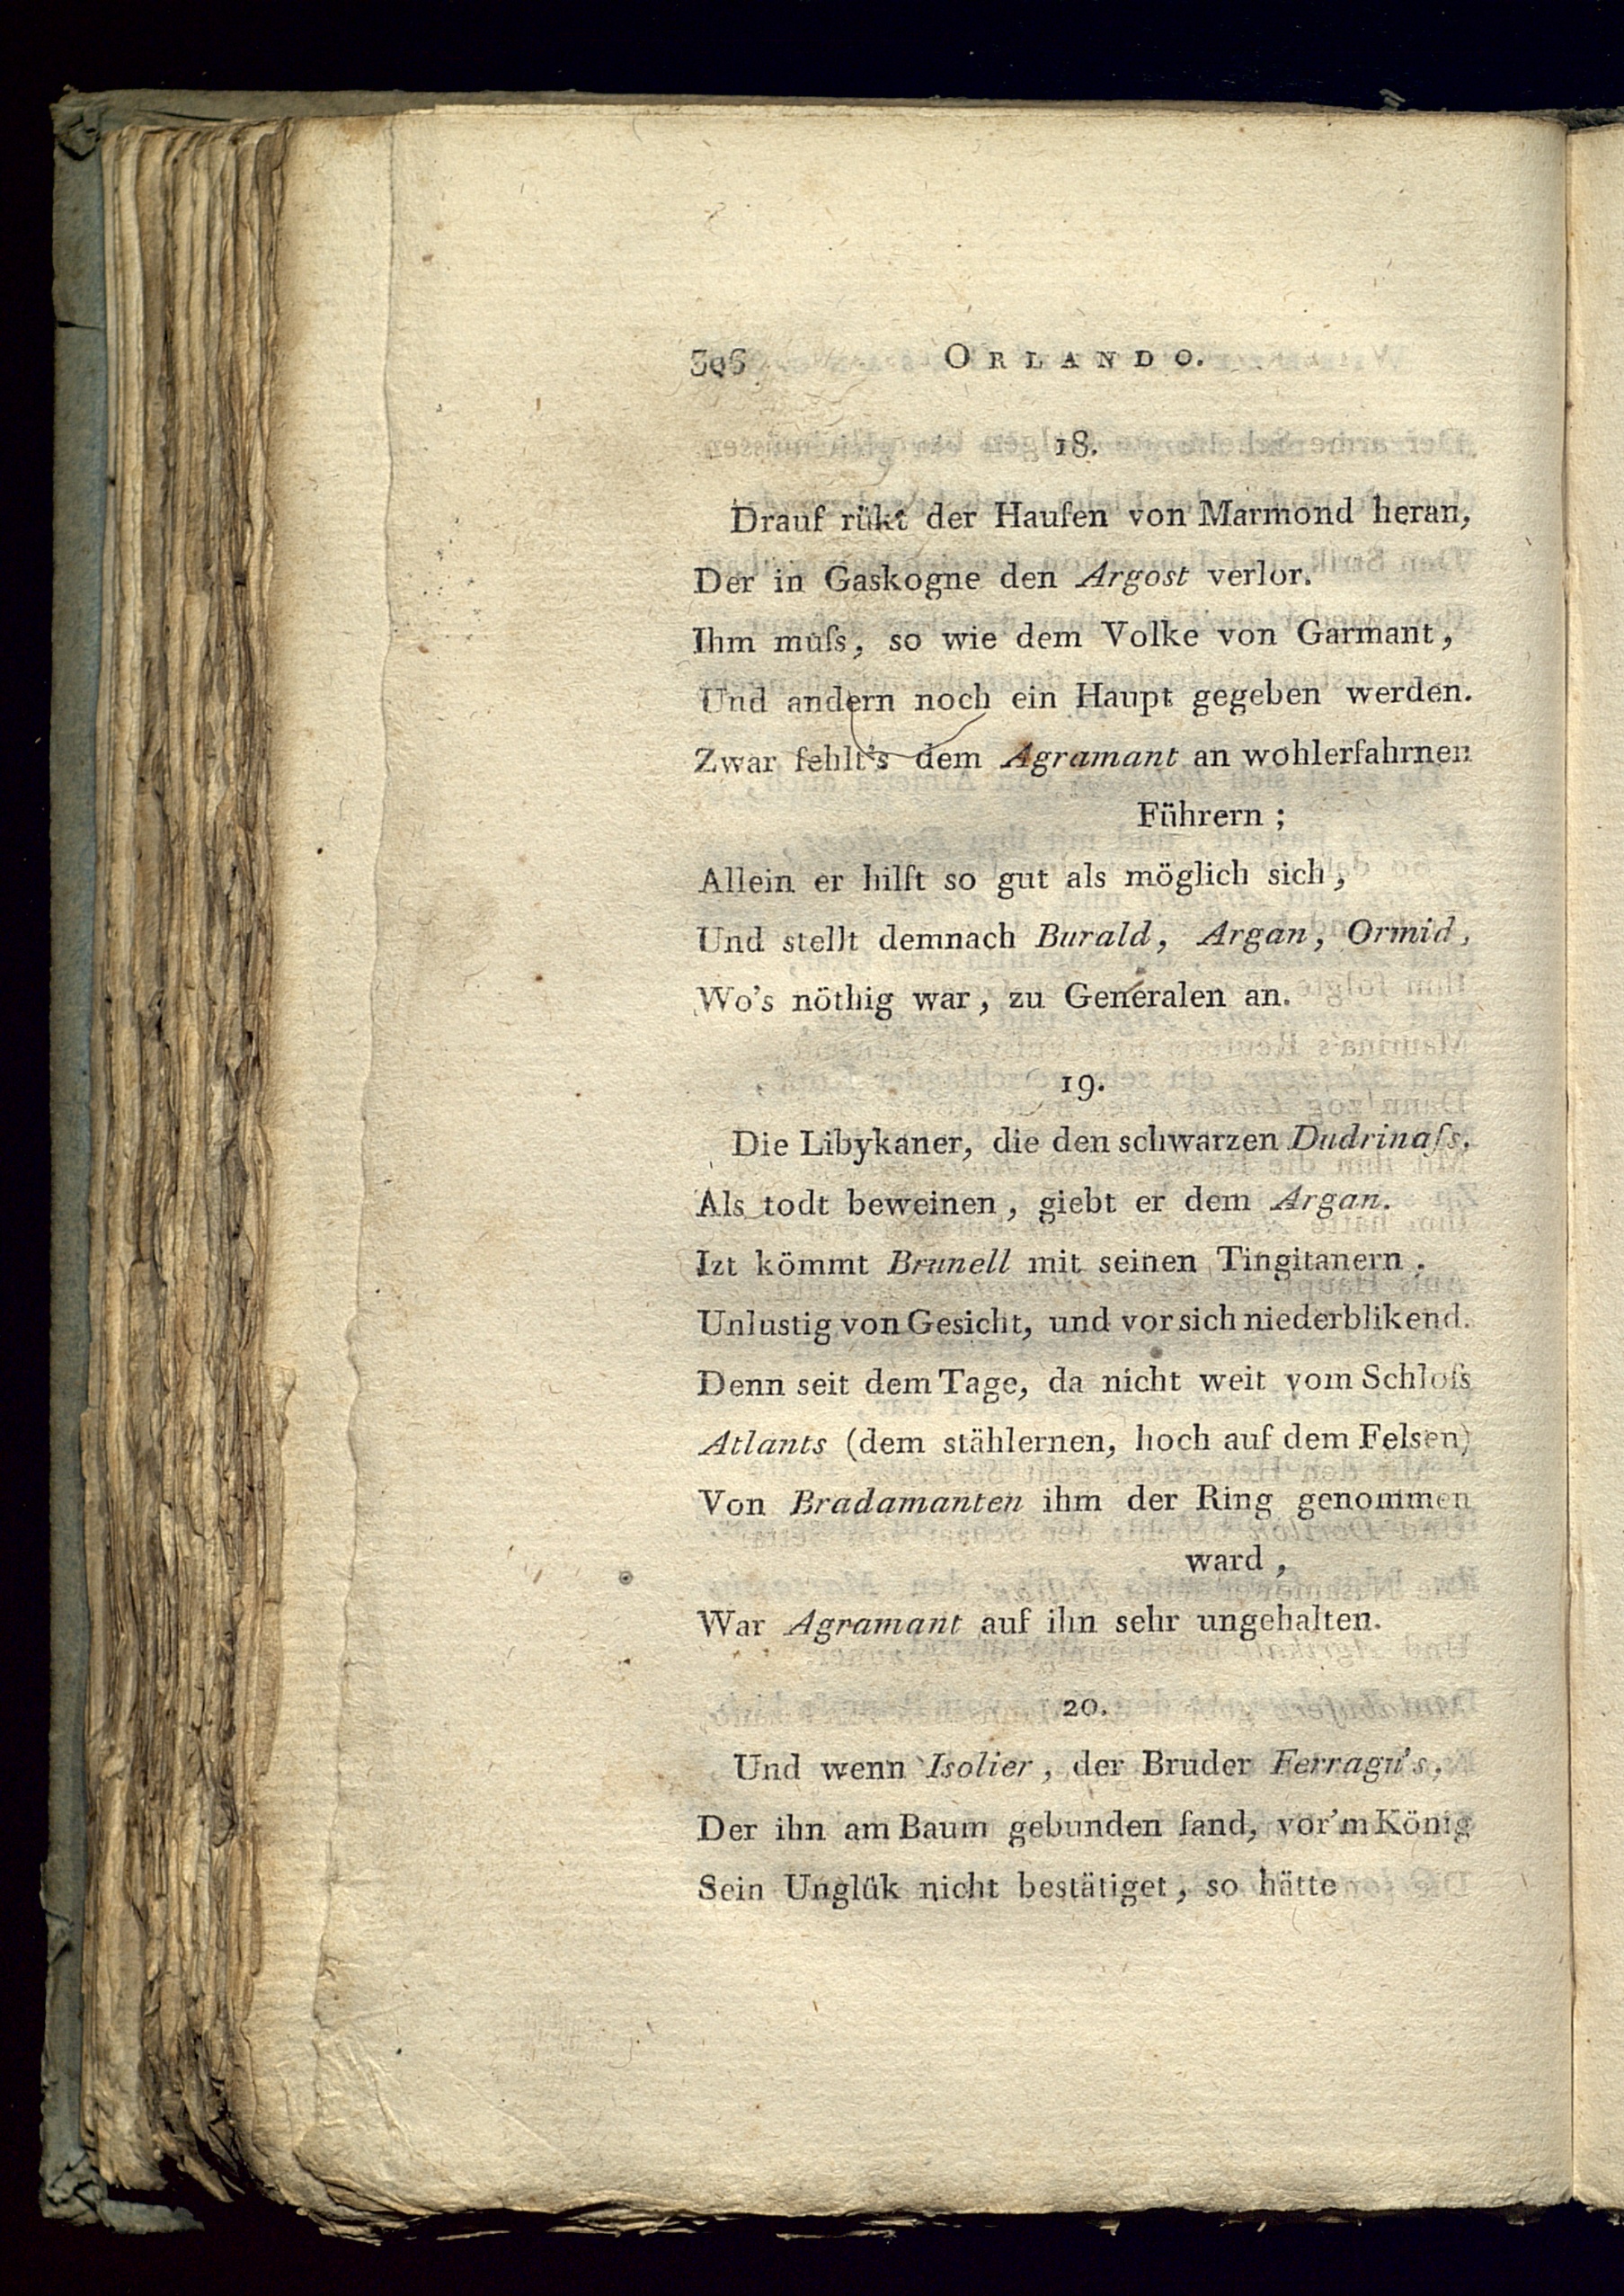 306 ORLANDO.
18.
Drauf rükt der Haufen von Marmond heran,
Der in Gaskogne den Argost verlor.
Ihm muſs, so wie dem Volke von Garmant,
Und andern noch ein Haupt gegeben werden.
Zwar fehlt's dem Agramant an wohlerfahrnen
Führern;
Allein er hilft so gut als möglich sich,
Und stellt demnach Burald, Argan, Ormid,
Wo's nöthig war, zu Generalen an.
19.
Die Libykaner, die den schwarzen Dudrinaſs,
Als todt beweinen, giebt er dem Argan.
Izt kömmt Brunell mit seinen Tingitanern,
Unlustig von Gesicht, und vor sich niederblikend.
Denn seit dem Tage, da nicht weit vom Schloſs
Atlants (dem stählernen, hoch auf dem Felsen)
Von Bradamanten ihm der Ring genommen
ward,
War Agramant auf ihn sehr ungehalten.
20.
Und wenn Isolier, der Bruder Ferragu's,
Der ihn am Baum gebunden fand, vor'm König
Sein Unglük nicht bestätiget, so hätte